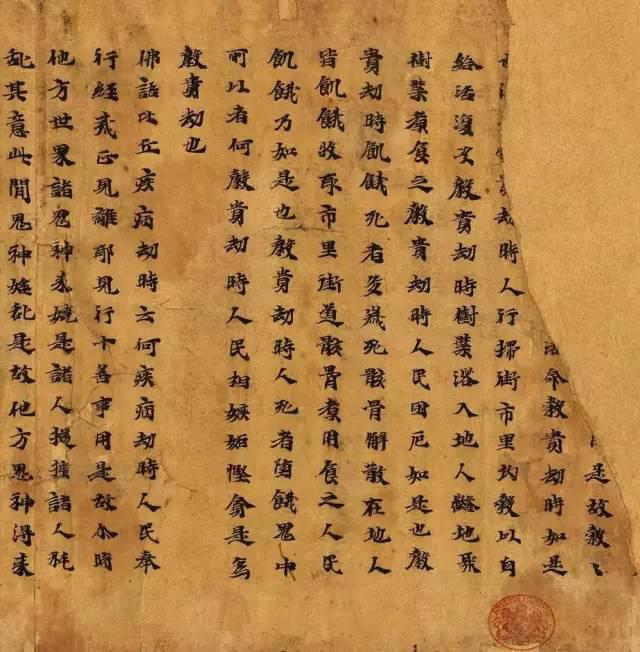 是故穀
活命穀貴劫時如是
劫時人行掃街市里均穀以自
給活復次穀貴劫時樹葉落入地人鑿地
樹葉煮食之穀貴劫時人民困厄如是也穀
貴劫時飢餓死者多死骸骨解散在地人
皆飢餓收取市里街道骸骨煮用食之人民
飢餓乃如是也穀貴劫時人死者墮餓鬼中
所以者何穀貴劫時人民相嫉妬慳貪是為
穀貴劫也
佛語比丘疾病劫時云何疾病劫時人民奉
行經戒正見離耶見行十善事用是故尒時
他方世界諸鬼神來嬈是諸人捉捶諸人
亂其意此間鬼神婬亂是故他方鬼神得來